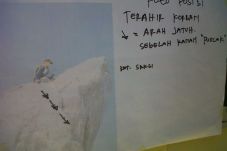 FOTO POSISI
TERAHIR KORBAN
↓ = ARAH JATUH.
SEBELAH KANAN "PUNCAK"
KET. SAKSI